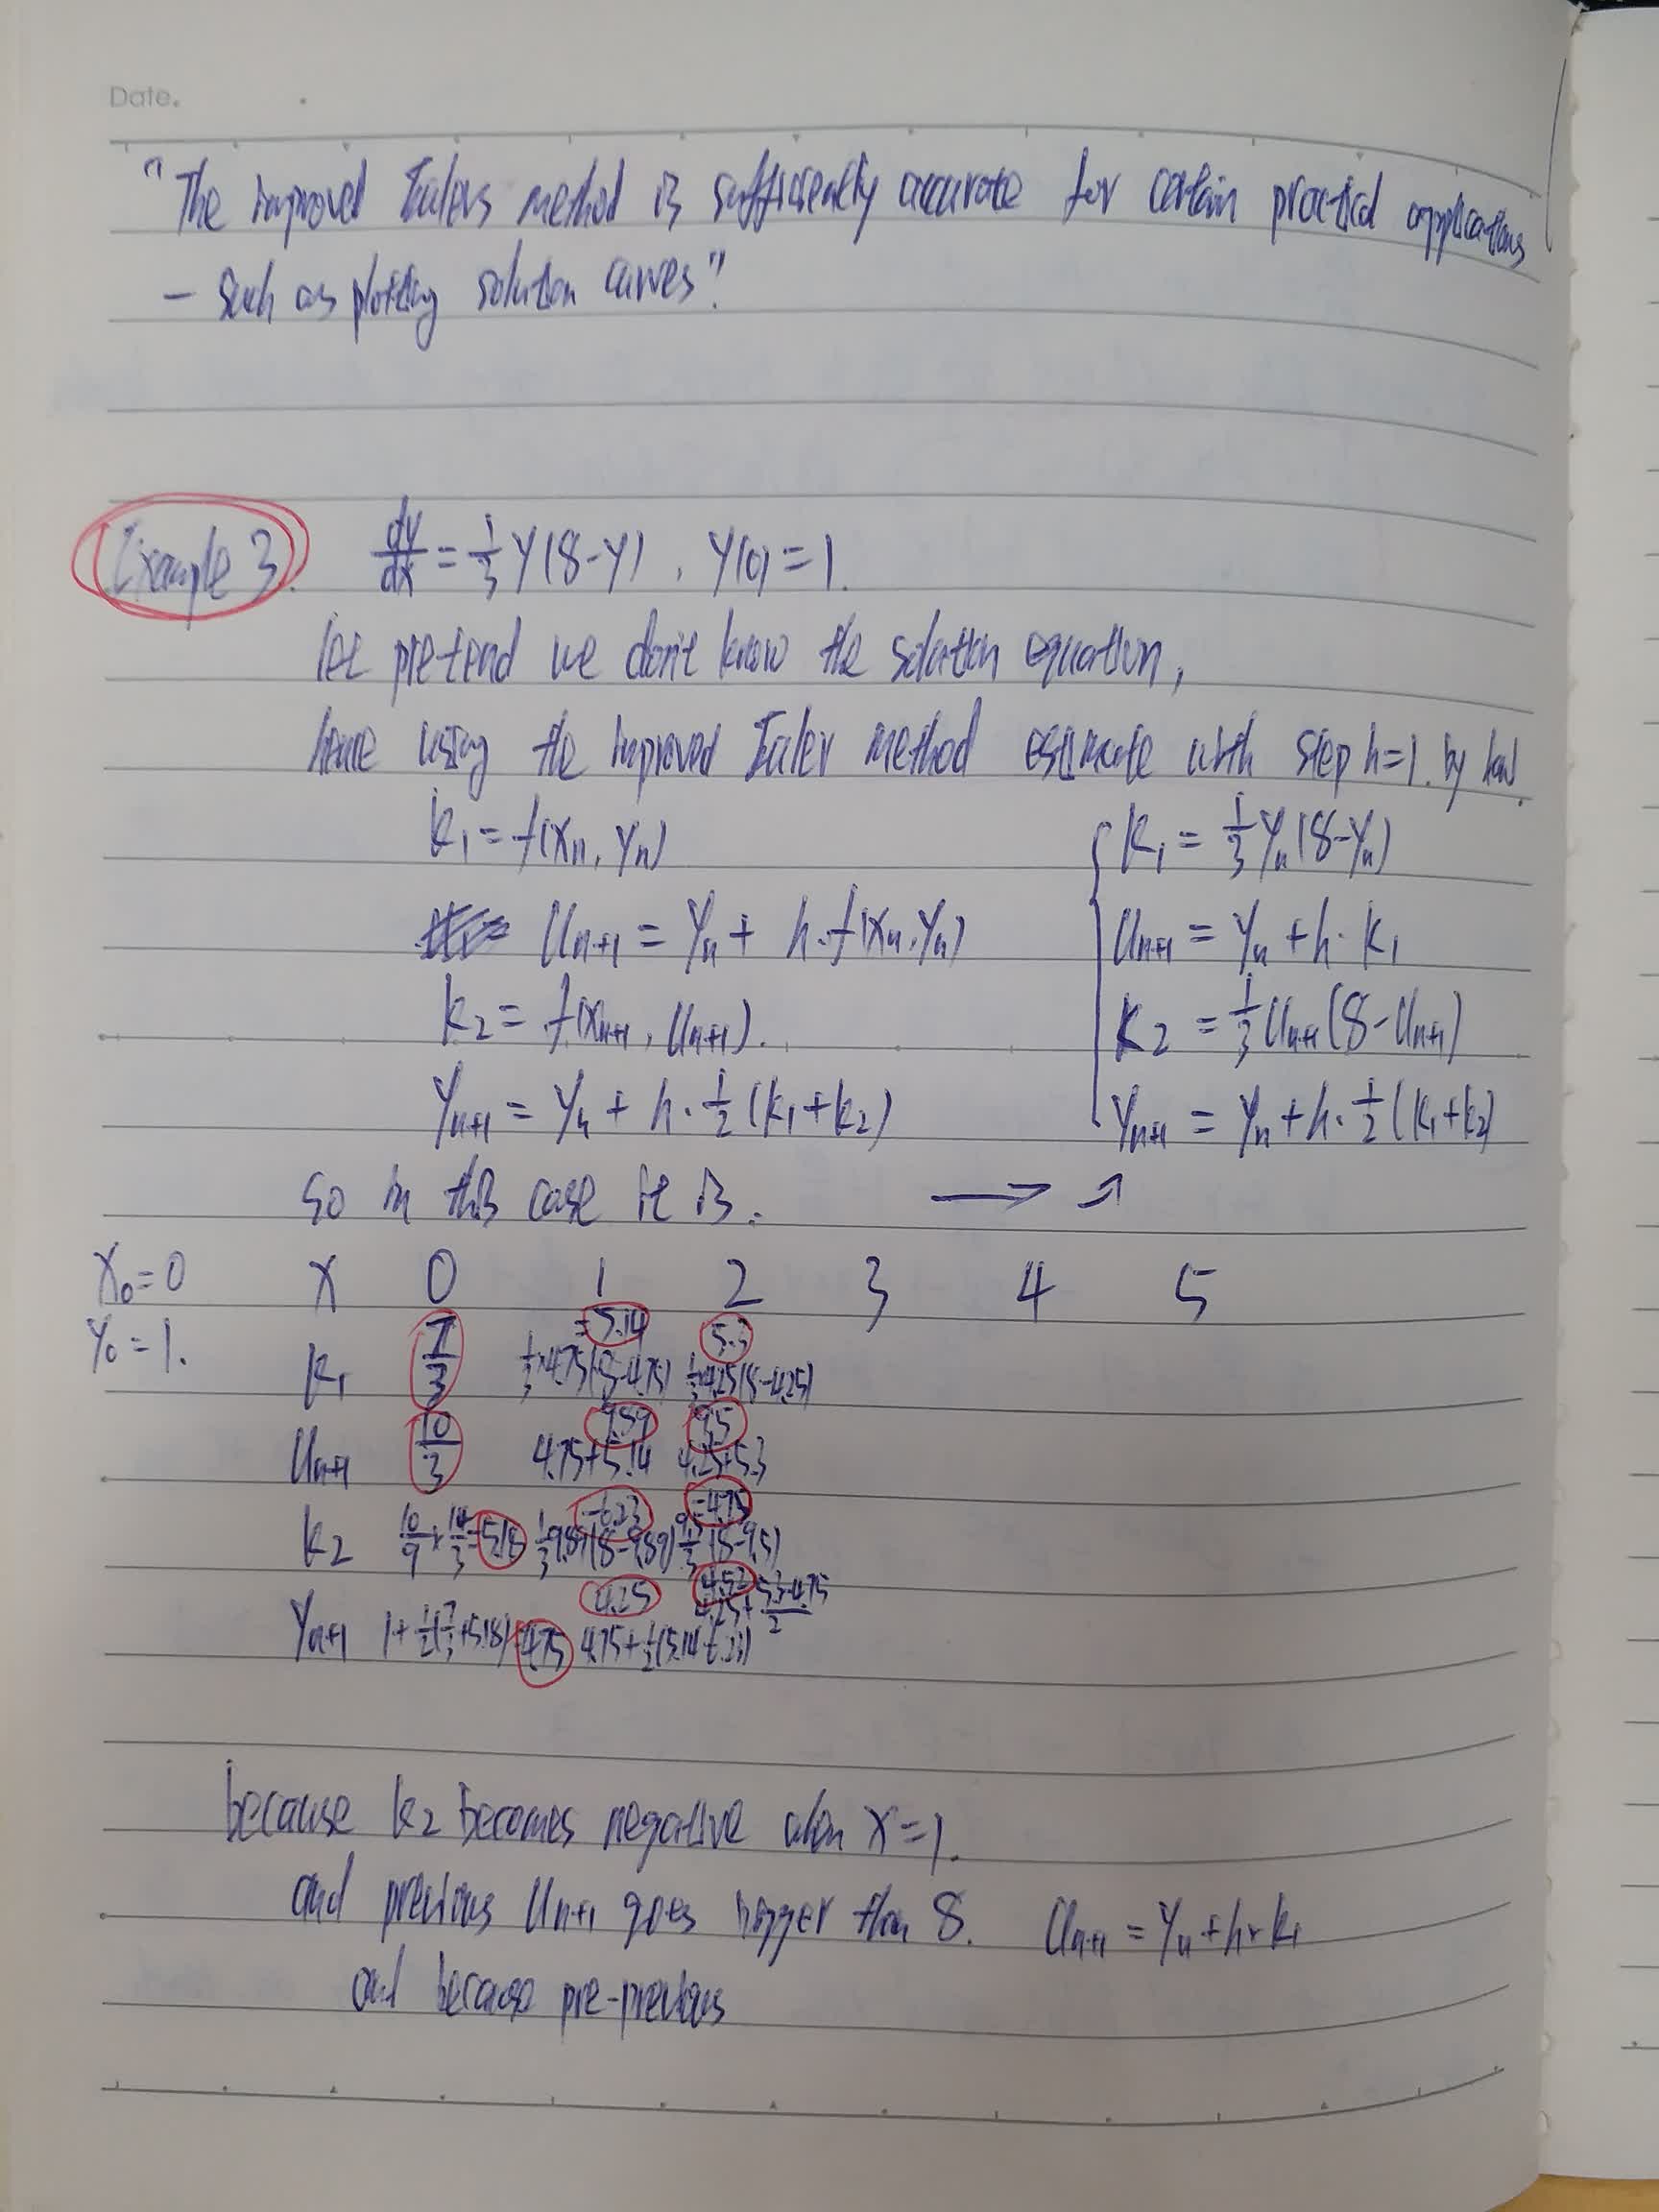 Date.
"The improved Eulers method is sufficiently accurate for certain practical applications
- such as plotting solution curves".
Example 3. dy/dx = 1/3 y(8-y), y(0)=1.
let pretend we don't know the solution equation,
hence using the improved Euler method estimate with step h=1. by
k₁ = f(xₙ, yₙ)
uₙ₊₁ = yₙ + h·f(xₙ, yₙ)
k₂ = f(xₙ₊₁, uₙ₊₁).
yₙ₊₁ = yₙ + h·1/2(k₁+k₂)
k₁ = 1/3 yₙ(8-yₙ)
uₙ₊₁ = yₙ + h·k₁
k₂ = 1/3 uₙ₊₁(8-uₙ₊₁)
yₙ₊₁ = yₙ + h·1/2(k₁+k₂)
so in this case it is. → ↗
x₀=0 x 0 1 2 3 4 5
=5.14 5.3
y₀=1. k₁ 7/3 1/3×4.75(8-4.75) 1/3×4.25(8-4.25)
9.89 9.5
uₙ₊₁ 10/3 4.75+5.14 4.25+5.3
-6.23 =-4.75
k₂ 10/9 × 14/3 =5.18 1/3 9.89(8-9.89) 9.5/3 (8-9.5)
4.25 4.53 4.25+ 5.3-4.75/2
yₙ₊₁ 1+1/2(7/3+5.18)=4.75 4.75+1/2(5.14-6.23)
because k₂ becomes negative when x=1.
and previous uₙ₊₁ goes bigger than 8. uₙ₊₁ = yₙ+h×k₁
and because pre-previous